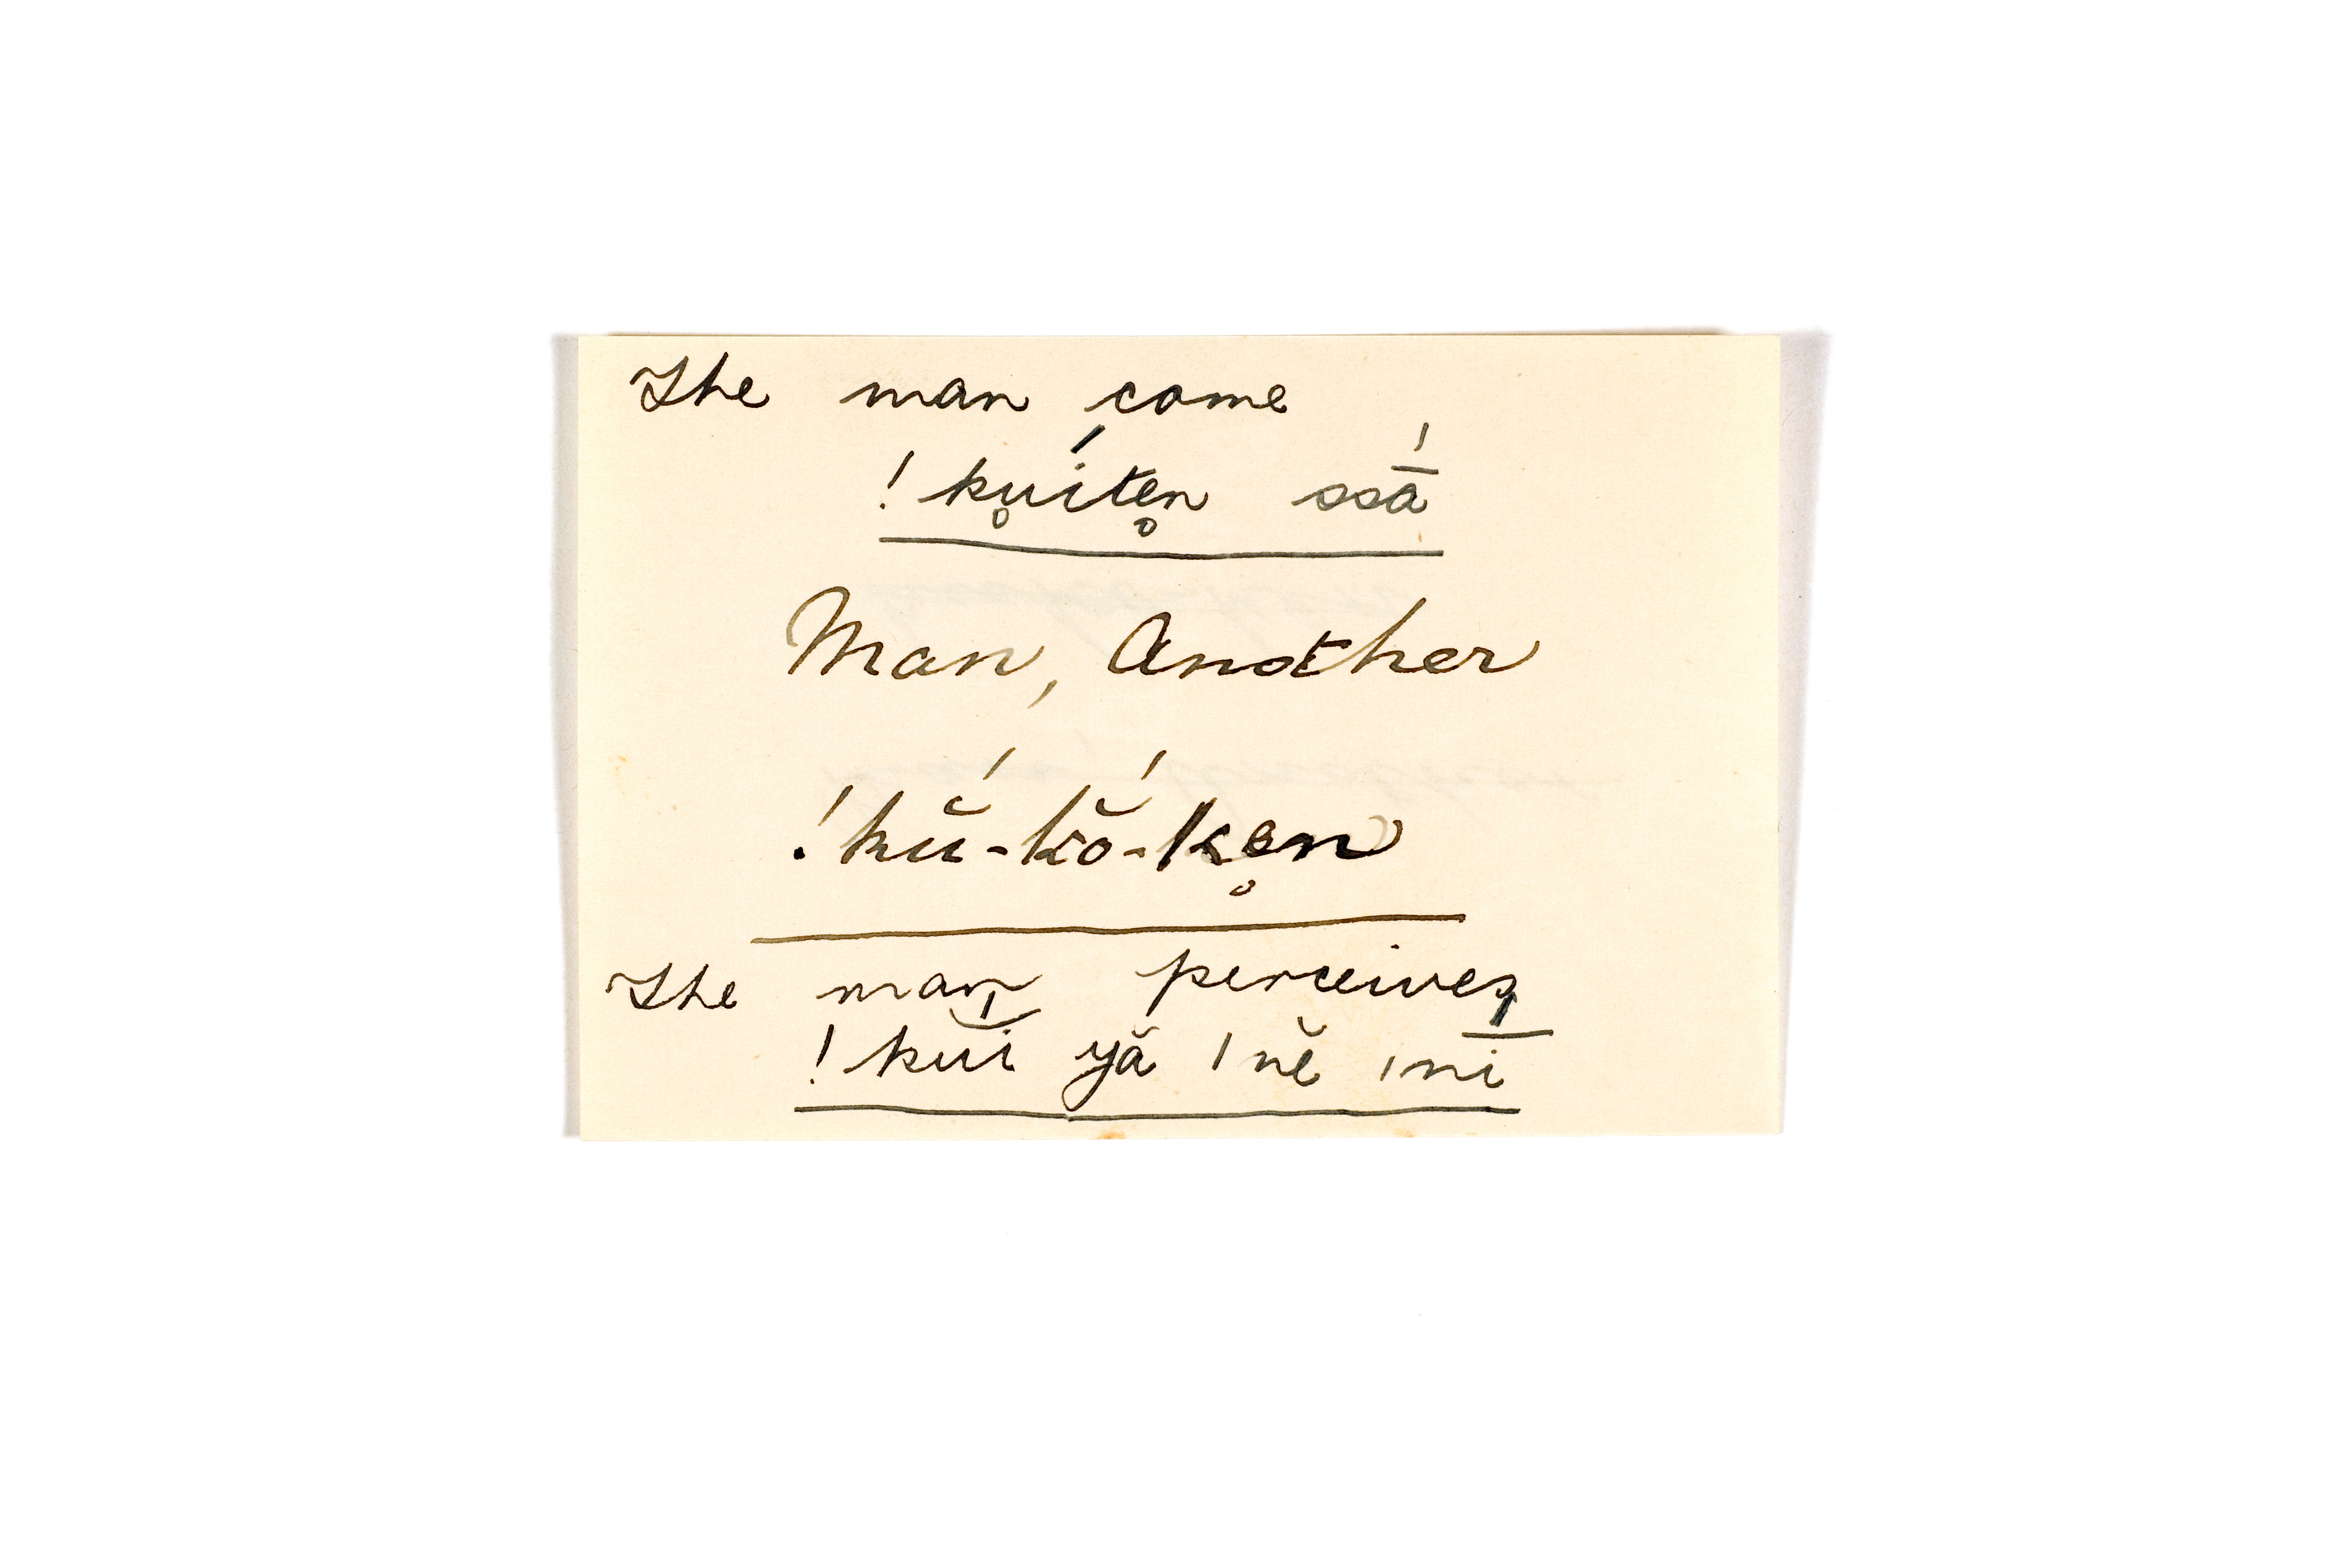 The man come
!ku̥íte̥n ssā́
Man, Another
!kŭ́-kŏ́-ke̥n
The man perceives
!kuĭ́ yă |nĕ |nī́